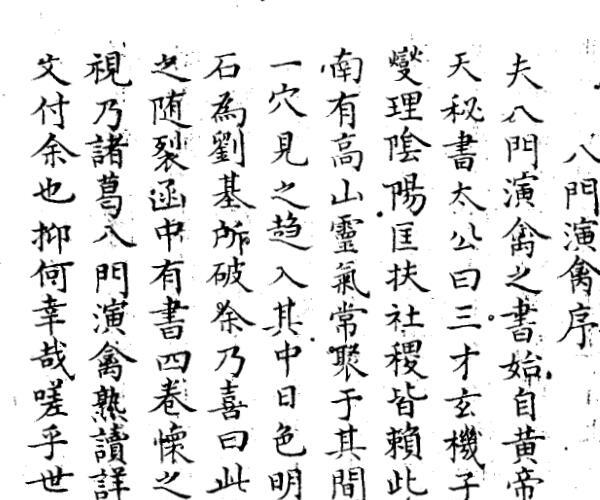 八門演禽序
夫八門演禽之書始自黃帝
天秘書太公曰三才玄機子
燮理陰陽匡扶社稷皆賴此
南有高山靈氣常聚于其間
一穴見之趋入其中日色明
石為劉基所破余乃喜曰此
之随裂函中有書四卷懷之
視乃諸葛八門演禽熟讀詳
文付余也抑何幸哉嗟乎世